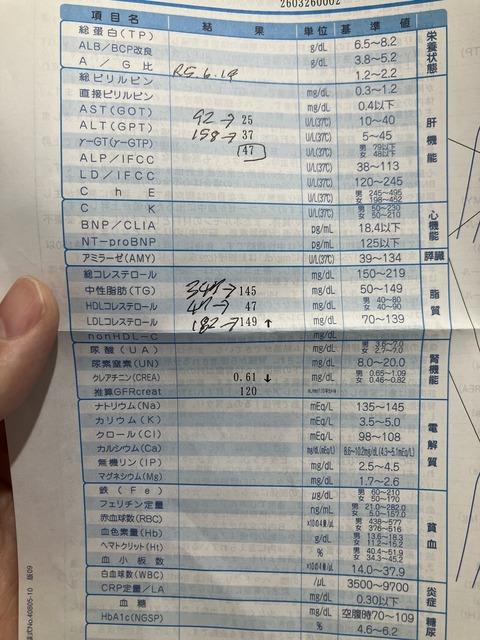 2603260002
項目名 結果 単位 基準値
総蛋白(TP) g/dL 6.5～8.2 栄養状態
ALB/BCP改良 g/dL 3.8～5.2
A／G比 R5.6.19 1.2～2.2
総ビリルビン mg/dL 0.3～1.2 肝機能
直接ビリルビン mg/dL 0.4以下
AST(GOT) 92→25 U/L(37℃) 10～40
ALT(GPT) 158→37 U/L(37℃) 5～45
γ-GT(γ-GTP) 47 U/L(37℃) 男 79以下 女 48以下
ALP/IFCC U/L(37℃) 38～113
LD/IFCC U/L(37℃) 120～245
ChE U/L(37℃) 男 245～495 女 198～452
CK U/L(37℃) 男 50～230 女 50～210 心機能
BNP/CLIA pg/mL 18.4以下
NT-proBNP pg/mL 125以下
アミラーゼ(AMY) U/L(37℃) 39～134 膵臓
総コレステロール mg/dL 150～219 脂質
中性脂肪(TG) →145 mg/dL 50～149
HDLコレステロール 47→47 mg/dL 男 40～80 女 40～90
LDLコレステロール 182→149 ↑ mg/dL 70～139
nonHDL-C mg/dL
尿酸(UA) mg/dL 男 3.6～7.0 女 2.7～7.0 腎機能
尿素窒素(UN) mg/dL 8.0～20.0
クレアチニン(CREA) 0.61 ↓ mg/dL 男 0.65～1.09 女 0.46～0.82
推算GFRcreat 120
ナトリウム(Na) mEq/L 135～145 電解質
カリウム(K) mEq/L 3.5～5.0
クロール(Cl) mEq/L 98～108
カルシウム(Ca) mg/dL(mEq/L) 8.6～10.2mg/dL(4.3～5.1mEq/L)
無機リン(IP) mg/dL 2.5～4.5
マグネシウム(Mg) mg/dL 1.7～2.6
鉄(Fe) μg/dL 男 60～210 女 50～170 貧血
フェリチン定量 ng/mL 男 21.0～282.0 女 5.0～157.0
赤血球数(RBC) ×10の4乗/μL 男 438～577 女 376～516
血色素量(Hb) g/dL 男 13.6～18.3 女 11.2～15.2
ヘマトクリット(Ht) % 男 40.4～51.9 女 34.3～45.2
血小板数 ×10の4乗/μL 14.0～37.9
白血球数(WBC) /μL 3500～9700 炎症
CRP定量/LA mg/dL 0.30以下
血糖 mg/dL 空腹時70～109 糖尿
HbA1c(NGSP) % 4.6～6.2
式CNo.40805-10 版09